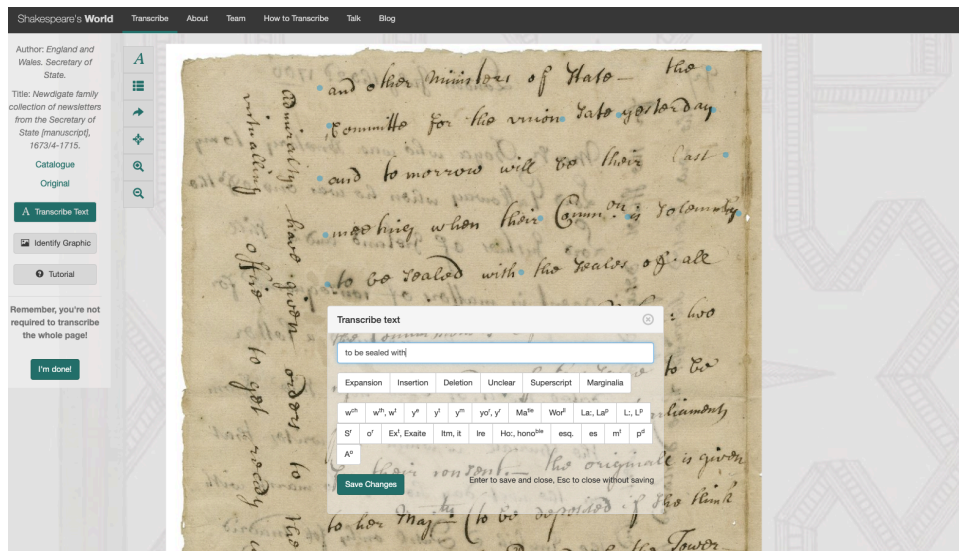 Shakespeare's World
Transcribe
About
Team
How to Transcribe
Talk
Blog
Author: England and
Wales. Secretary of
State.
Title: Newdigate family
collection of newsletters
from the Secretary of
State [manuscript],
1673/4-1715.
Catalogue
Original
A Transcribe Text
Identify Graphic
Tutorial
Remember, you're not
required to transcribe
the whole page!
I'm done!
A
and other ministers of State — the
Committe for the union sate yesterday
and to morrow will be their Last
meeting when their Common is solemnly
to be sealed with the seales of all
two
to be
liament
their consent — the originall is given
to her Majty (to be deposited if she think
the Tower
admiraltye have given orders to the
virtualling office to get ready
Transcribe text
to be sealed with
Expansion
Insertion
Deletion
Unclear
Superscript
Marginalia
wch
wth, wt
ye
yt
ym
yor, yr
Matie
Worll
La:, Lap
L:, Lp
Sr
or
Ext, Exaite
Itm, it
Ire
Ho:, honoble
esq.
es
mt
pd
Ao
Save Changes
Enter to save and close, Esc to close without saving